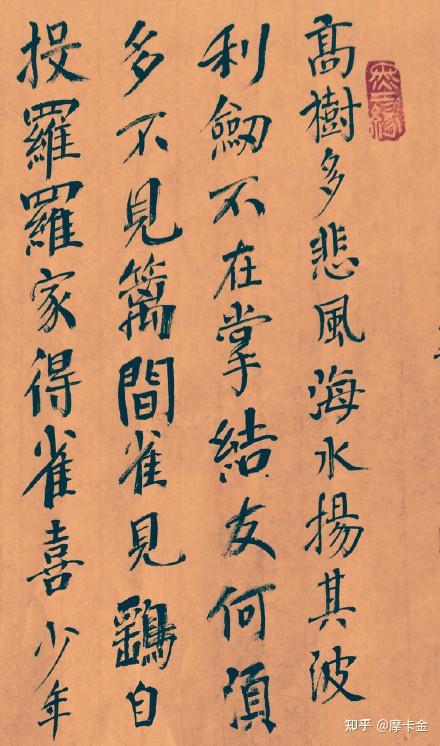 高樹多悲風海水揚其波
利劒不在掌結友何須
多不見篱間雀見鷂自
投羅羅家得雀喜少年
知乎 @摩卡金